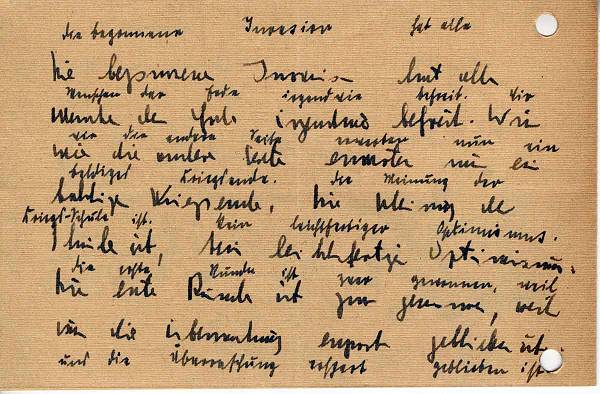 die begonnene Invasion hat alle
Die begonnene Invasion hat alle
Menschen der Erde irgendwie befreit. Wir
Menschen der Erde irgendwie befreit. Wir
wie die andere Seite erwarten nun ein
wie die andere Seite erwarten nun ein
baldiges Kriegsende. die Meinung der
baldiges Kriegsende, die Meinung der
Kriegs-Schule ist. Kein leichtfertiger Optimismus.
Schule ist, kein leichtfertiger Optimismus.
die erste Runde ist zwar gewonnen, weil
Die erste Runde ist zwar gewonnen, weil
die Überraschung erspart geblieben ist.
und die Überraschung erspart geblieben ist